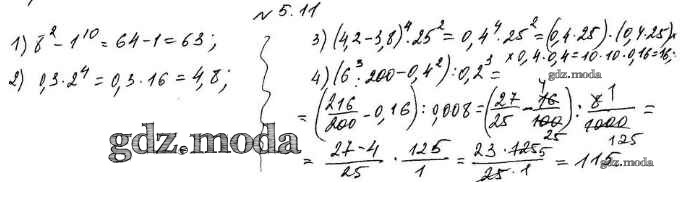 № 5.11
1) 8² - 1¹⁰ = 64 - 1 = 63;
2) 0,3 · 2⁴ = 0,3 · 16 = 4,8;
3) (4,2 - 3,8)⁴ · 25² = 0,4⁴ · 25² = (0,4 · 25) · (0,4 · 25) ×
× 0,4 · 0,4 = 10 · 10 · 0,16 = 16;
4) (6³ : 200 - 0,4²) : 0,2³ =
= (216/200 - 0,16) : 0,008 = (27/25 - 16/100) : 8/1000 =
4 25 1 125
= (27 - 4)/25 · 125/1 = (23 · 125)/(25 · 1) = 115
5
gdz.moda
gdz.moda
gdz.moda